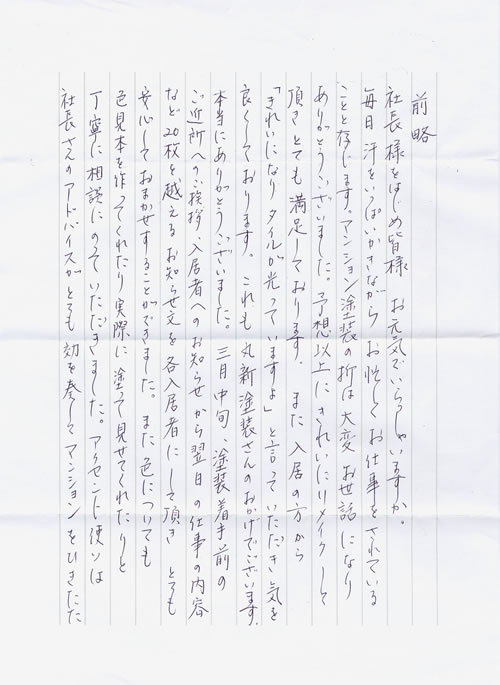 前略
社長様をはじめ皆様 お元気でいらっしゃいますか。
毎日汗をいっぱいかきながら お忙しく お仕事をされている
ことと存じます。マンション塗装の折は 大変 お世話になり
ありがとうございました。予想以上に きれいにリメイクして
頂き とても 満足しております。 また 入居の方から
「きれいになり タイルが光って いますよ」と言っていただき 気を
良くしております。 これも 丸新塗装さんのおかげでございます。
本当にありがとうございました。 三月中旬、塗装着手前の
ご近所へのご挨拶、入居者へのお知らせから 翌日の仕事の内容
など 20枚を越える お知らせ文を各入居者にして頂き とても
安心しておまかせすることができました。 また 色についても
色見本を作ってくれたり 実際に塗って見せてくれたりと
丁寧に相談にのっていただきました。アクセント使いは
社長さんのアドバイスがとても 効を奏して マンションをひきたた